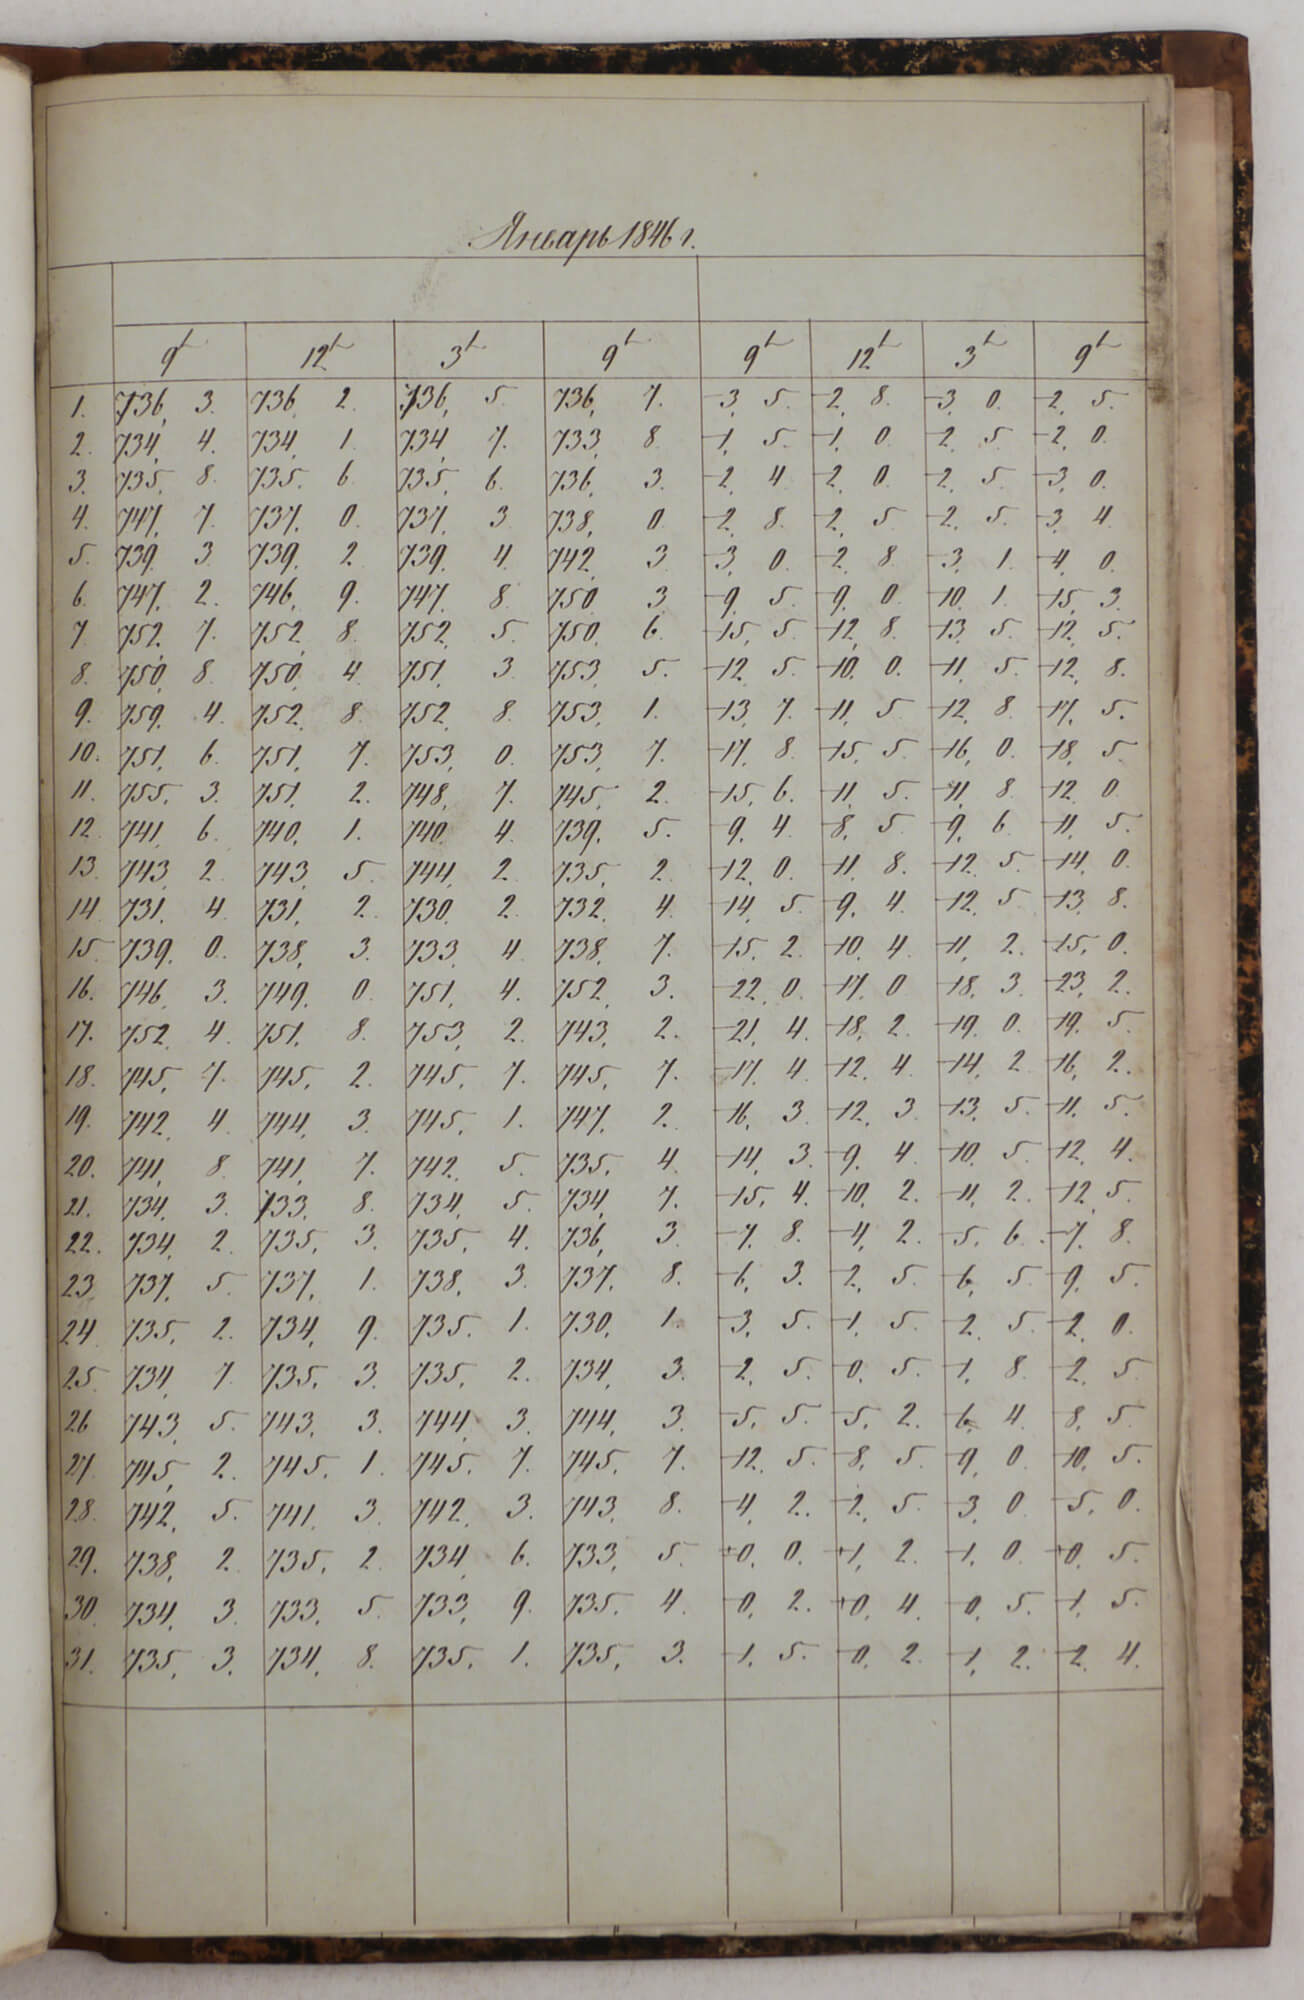 Январь 1846 г.
9ч 12ч 3ч 9ч 9ч 12ч 3ч 9ч
1. 736, 3. 736, 2. 736, 5. 736, 7. -3, 5. -2, 8. -3, 0. -2, 5.
2. 734, 4. 734, 1. 734, 7. 733, 8. -1, 5. -1, 0. -2, 5. -2, 0.
3. 735, 8. 735, 6. 735, 6. 736, 3. -2, 4. -2, 0. -2, 5. -3, 0.
4. 747, 7. 737, 0. 737, 3. 738, 0. -2, 8. -2, 5. -2, 5. -3, 4.
5. 739, 3. 739, 2. 739, 4. 742, 3. -3, 0. -2, 8. -3, 1. -4, 0.
6. 747, 2. 746, 9. 747, 8. 750, 3. -9, 5. -9, 0. -10, 1. -15, 3.
7. 752, 7. 752, 8. 752, 5. 750, 6. -15, 5. -12, 8. -13, 5. -12, 5.
8. 750, 8. 750, 4. 751, 3. 753, 5. -12, 5. -10, 0. -11, 5. -12, 8.
9. 759, 4. 752, 8. 752, 8. 753, 1. -13, 7. -11, 5. -12, 8. -17, 5.
10. 751, 6. 751, 7. 753, 0. 753, 7. -17, 8. -15, 5. -16, 0. -18, 5.
11. 755, 3. 751, 2. 748, 7. 745, 2. -15, 6. -11, 5. -11, 8. -12, 0.
12. 741, 6. 740, 1. 740, 4. 739, 5. -9, 4. -8, 5. -9, 6. -11, 5.
13. 743, 2. 743, 5. 744, 2. 735, 2. -12, 0. -11, 8. -12, 5. -14, 0.
14. 731, 4. 731, 2. 730, 2. 732, 4. -14, 5. -9, 4. -12, 5. -13, 8.
15. 739, 0. 738, 3. 733, 4. 738, 7. -15, 2. -10, 4. -11, 2. -15, 0.
16. 746, 3. 749, 0. 751, 4. 752, 3. -22, 0. -17, 0. -18, 3. -23, 2.
17. 752, 4. 751, 8. 753, 2. 743, 2. -21, 4. -18, 2. -19, 0. -19, 5.
18. 745, 7. 745, 2. 745, 7. 745, 7. -17, 4. -12, 4. -14, 2. -16, 2.
19. 742, 4. 744, 3. 745, 1. 747, 2. -16, 3. -12, 3. -13, 5. -11, 5.
20. 741, 8. 741, 7. 742, 5. 735, 4. -14, 3. -9, 4. -10, 5. -12, 4.
21. 734, 3. 733, 8. 734, 5. 734, 7. -15, 4. -10, 2. -11, 2. -12, 5.
22. 734, 2. 735, 3. 735, 4. 736, 3. -7, 8. -4, 2. -5, 6. -7, 8.
23. 737, 5. 737, 1. 738, 3. 737, 8. -6, 3. -2, 5. -6, 5. -9, 5.
24. 735, 2. 734, 9. 735, 1. 730, 1. -3, 5. -1, 5. -2, 5. -2, 0.
25. 734, 7. 735, 3. 735, 2. 734, 3. -2, 5. -0, 5. -1, 8. -2, 5.
26. 743, 5. 743, 3. 744, 3. 744, 3. -5, 5. -5, 2. -6, 4. -8, 5.
27. 745, 2. 745, 1. 745, 7. 745, 7. -12, 5. -8, 5. -9, 0. -10, 5.
28. 742, 5. 741, 3. 742, 3. 743, 8. -4, 2. -2, 5. -3, 0. -5, 0.
29. 738, 2. 735, 2. 734, 6. 733, 5. +0, 0. +1, 2. -1, 0. +0, 5.
30. 734, 3. 733, 5. 733, 9. 735, 4. -0, 2. +0, 4. -0, 5. -1, 5.
31. 735, 3. 734, 8. 735, 1. 735, 3. -1, 5. -0, 2. -1, 2. -2, 4.